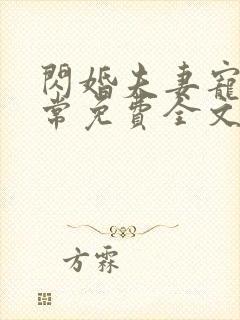 閃婚夫妻寵
常免費全文
方霖